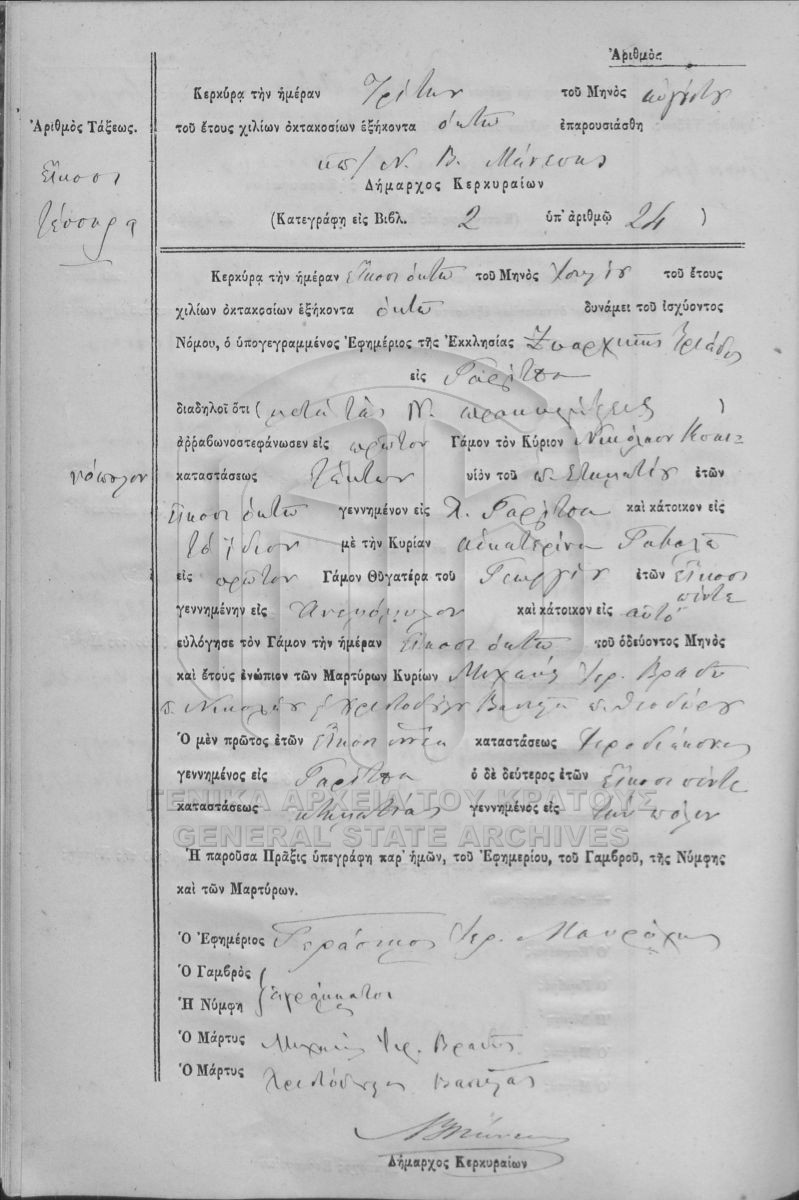 Ἀριθμὸς
Κερκύρᾳ τὴν ἡμέραν Τρίτην τοῦ Μηνὸς αὐγούστου
Ἀριθμὸς Τάξεως.
τοῦ ἔτους χιλίων ὀκτακοσίων ἑξήκοντα ὀκτὼ ἐπαρουσιάσθη
Εἴκοσι
Ν. Β. Μάνεσης
Δήμαρχος Κερκυραίων
τέσσαρα
(Κατεγράφη εἰς Βιβλ. 2 ὑπ' ἀριθμῷ 24 )
Κερκύρᾳ τὴν ἡμέραν εἴκοσι ὀκτὼ τοῦ Μηνὸς Ἰουλίου τοῦ ἔτους
χιλίων ὀκτακοσίων ἑξήκοντα ὀκτὼ δυνάμει τοῦ ἰσχύοντος
Νόμου, ὁ ὑπογεγραμμένος Ἐφημέριος τῆς Ἐκκλησίας Ζωαρχικῆς Τριάδος
εἰς Γαρίτσα
διαδηλοῖ ὅτι ( μετὰ τὰς Ν. )
ἀῤῥαβωνοστεφάνωσεν εἰς πρῶτον Γάμον τὸν Κύριον Νικόλαον
καταστάσεως υἱὸν τοῦ π. Σταματίου ἐτῶν
εἴκοσι ὀκτὼ γεννημένον εἰς Χ. Γαρίτσα καὶ κάτοικον εἰς
τὸ ἴδιον μὲ τὴν Κυρίαν αἰκατερίνα Γαβαλᾶ
εἰς πρῶτον Γάμον Θυγατέρα τοῦ Γεωργίου ἐτῶν εἴκοσι
πέντε
γεννημένην εἰς Ἀνεμόμυλον καὶ κάτοικον εἰς αὐτὸ
εὐλόγησε τὸν Γάμον τὴν ἡμέραν εἴκοσι ὀκτὼ τοῦ ὁδεύοντος Μηνὸς
καὶ ἔτους ἐνώπιον τῶν Μαρτύρων Κυρίων Μιχαὴλ Ἱερ.
π. Νικολάου Χριστοδούλου π. Θεοδώρου
Ὁ μὲν πρῶτος ἐτῶν εἴκοσι ἐννέα καταστάσεως Ἱεροδιάκονος
γεννημένος εἰς Γαρίτσα ὁ δὲ δεύτερος ἐτῶν εἴκοσι πέντε
καταστάσεως κτηματίας γεννημένος εἰς τὴν πόλιν
ΓΕΝΙΚΑ ΑΡΧΕΙΑ ΤΟΥ ΚΡΑΤΟΥΣ
GENERAL STATE ARCHIVES
Ἡ παροῦσα Πρᾶξις ὑπεγράφη παρ' ἡμῶν, τοῦ Ἐφημερίου, τοῦ Γαμβροῦ, τῆς Νύμφης
καὶ τῶν Μαρτύρων.
Ὁ Ἐφημέριος Γεράσιμος Ἱερ.
Ὁ Γαμβρὸς
ἀγράμματοι
Ἡ Νύμφη
Ὁ Μάρτυς Μιχαὴλ Ἱερ.
Ὁ Μάρτυς Χριστόδουλος
Δήμαρχος Κερκυραίων